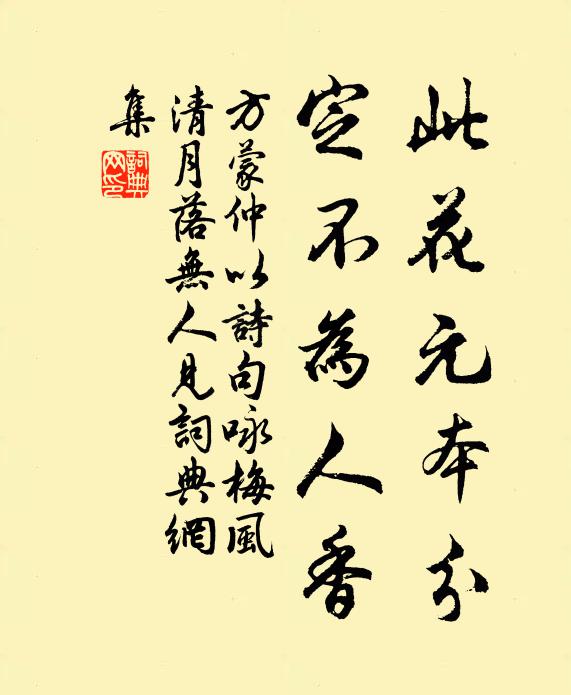 此花元本分
定不為人香
方蒙仲以詩句咏梅風
清月落無人見詞典網
集
詞典
网印